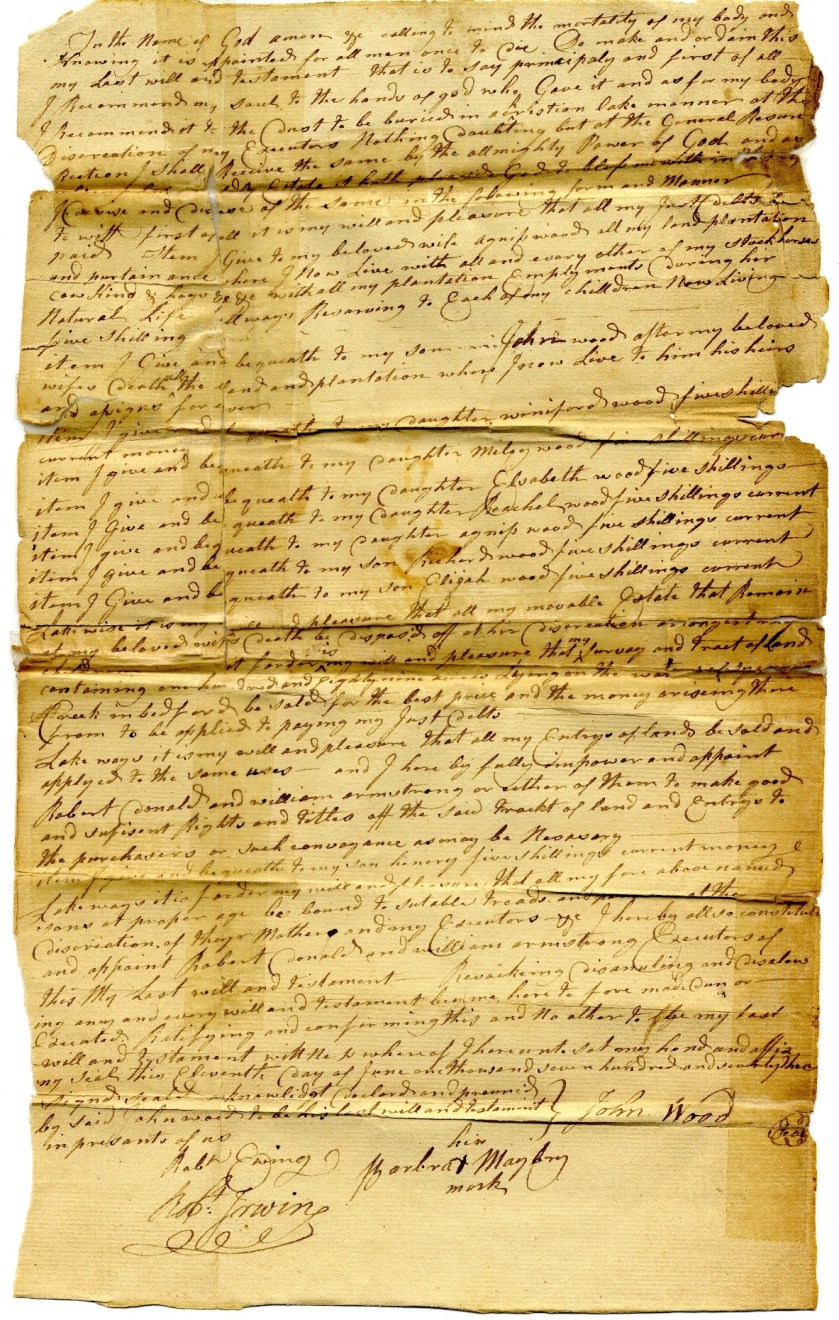 In the Name of God amen &c calling to mind the mortality of my body and
Knowing it is appointed for all men once to Die Do make and ordain this
my Last will and testament that is to say principaly and first of all
I Recommend my Soul to the hands of god who Gave it and as for my body
I Recommend it to the Dust to be buried in a Christian Like manner at the
Discreation of my Executors Nothing Doubting but at the General Resure
Rection I shall Receive the same by the allmighty Power of God and as
Estate it hath pleased God to bless me with in
and Dispose of the same in the following form and Manner
to witt first of all it is my will and pleasure that all my Just Debts be
paid Item I Give to my beloved wife agniss wood all my land plantation
and purtainance where I Now Live with all and every other of my Stock horses
Cow Kind & hogs &c &c with all my plantation Emplyments During her
Natural Life allways Resarving to Each of my children Now Living
five shilling
item I Give and bequeath to my son John wood after my beloved
wifes Death all the Land and plantation where I now Live to him his heirs
and asigns for ever
item I give and bequeath to my Daughter winiford wood five shill
current money
item I give and bequeath to my Daughter Milley wood five shillings curr
item I give and bequeath to my Daughter Elsabeth wood five shillings
item I Give and bequeath to my Daughter Reachel wood five shillings current
item I give and bequeath to my Daughter agniss wood five shillings current
item I give and bequeath to my son Richerd wood five shillings current
item I Give and bequeath to my son Elijah wood five shillings current
Lakewise it is my will and pleasure that all my movable Estate that Remain
at my beloved wifes Death be disposd off at hir Discreation amongest my
it is forder my will and pleasure that my survay and tract of land
containing one hundred and Eighty nine acres Lying on the
Creek in bedford be sold for the best price and the money arising there
from to be applied to paying my Just Debts
Lake ways it is my will and pleasure that all my Entrys of lands be sold and
applyed to the same uses — and I here by fully impower and appoint
Robert Donald and william armstrong or either of them to make good
and sufisent Rights and titles off the said trackt of land and Entrys to
the purchasers or such convayance as may be Nesasary
item I give and bequeath to my son henery five shillings current money &
Lake ways it is forder my will and pleasure that all my fore above named
sons at proper age be bound to sutable treads at the
discreation of theyr Mother and my Executors &c I hereby all so constitute
and appoint Robert Donald and william armstrong Executors of
this My Last will and testament Revoicking Disanuling and Disalow
ing any and every will and testament by me here to fore made Dun or
Executed Retifying and confor ming this and No other to be my Last
will and testament wittness where of I hereunto set my hand and affix
my seal this Eleventh Day of June one thousand seven hundred and seventy three
signd seald aknowlidgt Declard and
by said John wood to be his last will and testament } John Wood Seal
in presants of us
Robt Ewing
her
Borbra Maybry
mark
Robt. Irwin